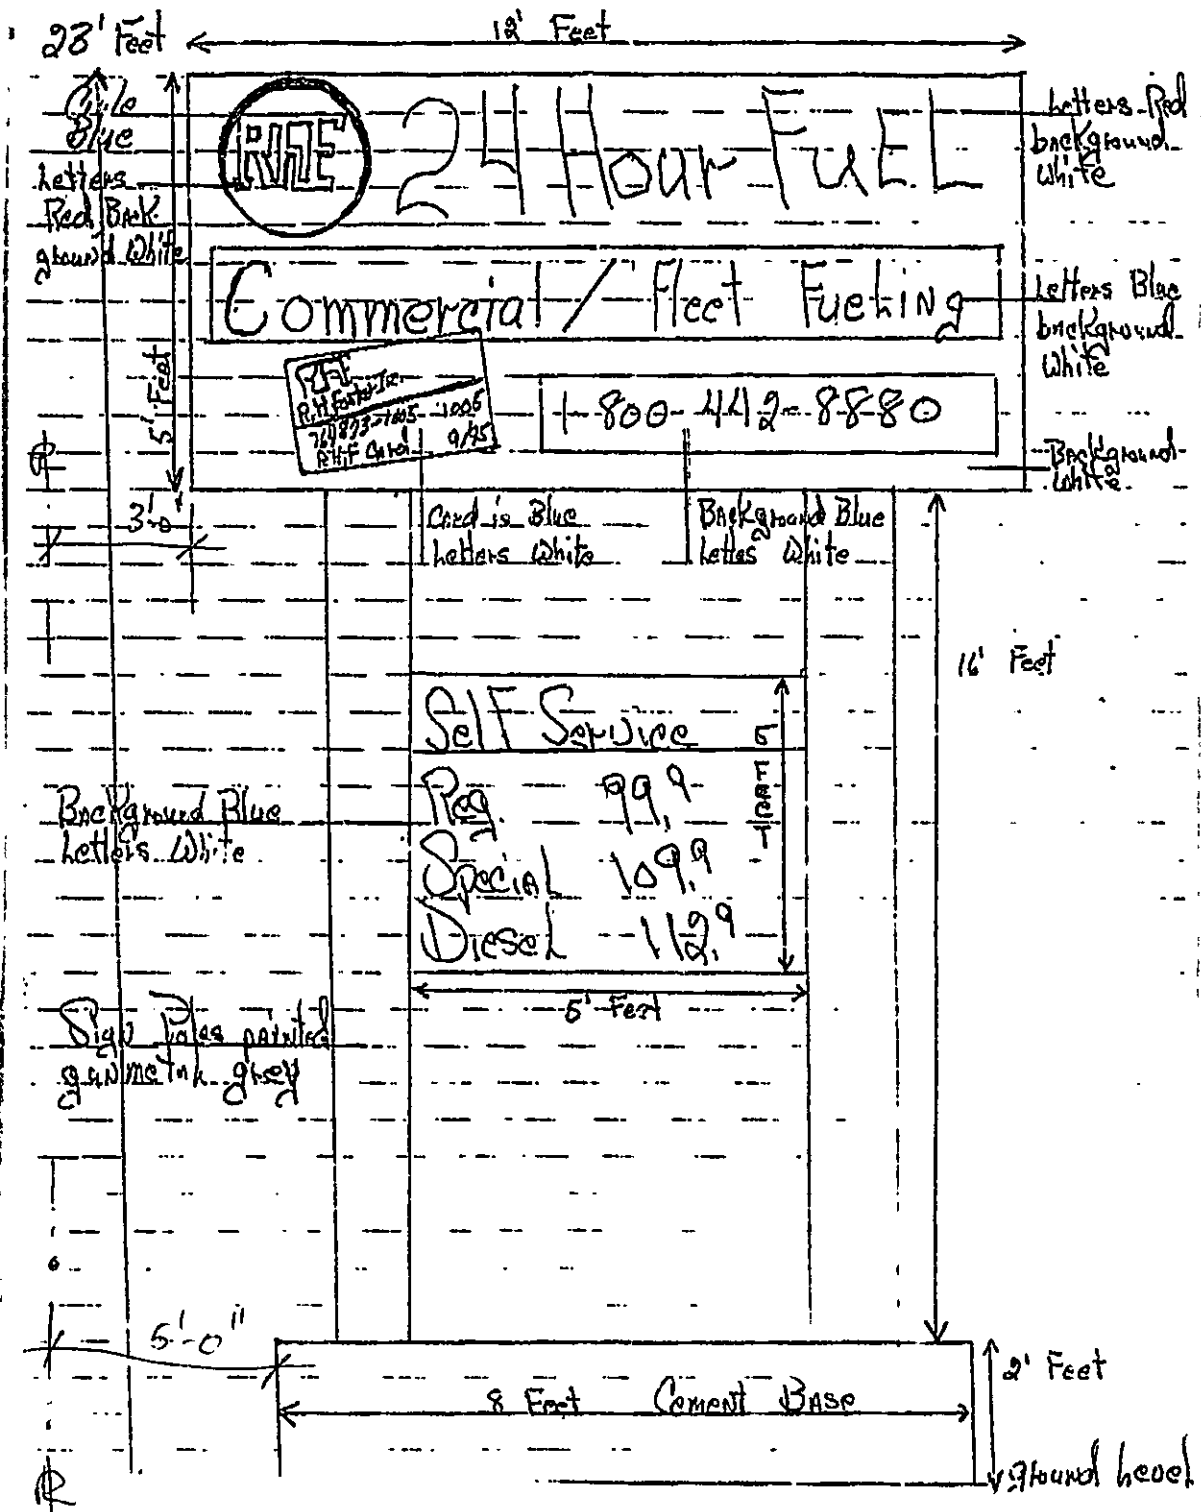 23' Feet
12' Feet
Blue
Letters
Red Back
ground White
RHFE
24 Hour FuEL
Letters Red
background
White
Commercial / Fleet Fueling
Letters Blue
background
White
5' Feet
R.H. Foster Inc.
9/95
R.H.F Card
1-800-442-8880
Background
White
3'-0"
Card is Blue
Letters White
Background Blue
Lettes White
16' Feet
Self Service
Reg. 99.9
Special 109.9
Diesel 112.9
5 FEET
5' Feet
Background Blue
Letters White
Sign Poles painted
grey
5'-0"
8 Feet Cement Base
2' Feet
Ground Level